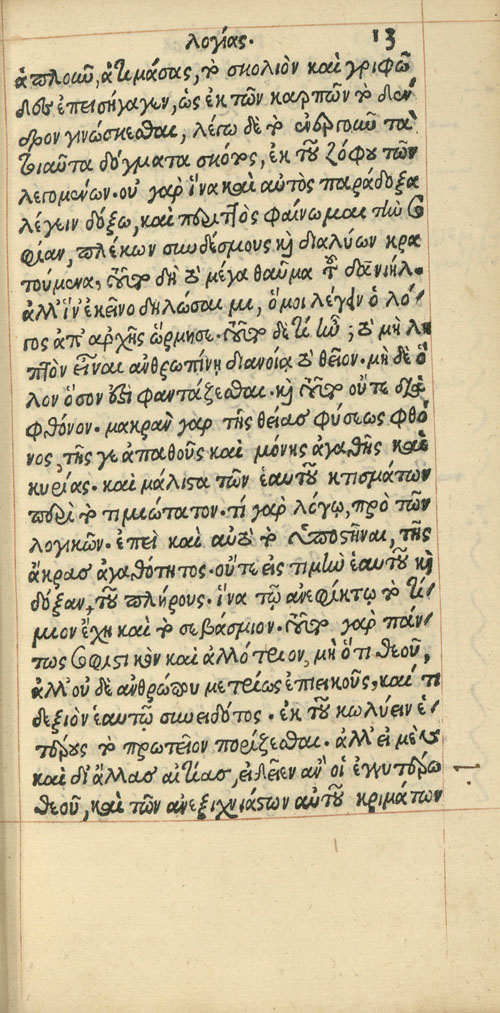 λογίας. 13
ἁπλοῦν, ἀτιμάσας, τὸ σκολιὸν καὶ γριφῶ
δες ἐπεισήγαγεν, ὡς ἐκ τῶν καρπῶν τὸ δέν
δρον γινώσκεσθαι, λέγω δὲ τὸ ἐνεργοῦν τὰ
τοιαῦτα δόγματα σκότος, ἐκ τοῦ ζόφου τῶν
λεγομένων. οὐ γὰρ ἵνα καὶ αὐτὸς παράδοξα
λέγειν δόξω, καὶ περιττὸς φαίνωμαι τὴν σο
φίαν, πλέκων συνδέσμους καὶ διαλύων κρα
τούμενα, τοῦτο δὴ τὸ μέγα θαῦμα τοῦ δανιήλ.
ἀλλ' ἵν' ἐκεῖνο δηλώσαιμι, ὅ μοι λέγειν ὁ λό
γος ἀπ' ἀρχῆς ὥρμησε. τοῦτο δὲ τί ἦν; τὸ μὴ λη
πτὸν εἶναι ἀνθρωπίνῃ διανοίᾳ τὸ θεῖον. μὴ δὲ ὅ
λον ὅσον ἐστὶ φαντάζεσθαι. καὶ τοῦτο οὔτε διὰ
φθόνον. μακρὰν γὰρ τῆς θείας φύσεως φθό
νος, τῆς γε ἀπαθοῦς καὶ μόνης ἀγαθῆς καὶ
κυρίας. καὶ μάλιστα τῶν ἑαυτοῦ κτισμάτων
περὶ τὸ τιμιώτατον. τί γὰρ λόγῳ, πρὸ τῶν
λογικῶν. ἐπεὶ καὶ αὐτὸ τὸ ὑποστῆναι, τῆς
ἄκρας ἀγαθότητος. οὔτε εἰς τιμὴν ἑαυτοῦ καὶ
δόξαν, τοῦ πλήρους. ἵνα τῷ ἀνεφίκτῳ τὸ τί
μιον ἔχῃ καὶ τὸ σεβάσμιον. τοῦτο γὰρ πάν
τως σοφιστικὸν καὶ ἀλλότριον, μὴ ὅτι θεοῦ,
ἀλλ' οὐδὲ ἀνθρώπου μετρίως ἐπιεικοῦς, καί τι
δεξιὸν ἑαυτῷ συνειδότος. ἐκ τοῦ κωλύειν ἑ
τέρους τὸ πρωτεῖον πορίζεσθαι. ἀλλ' εἰ μὲν
καὶ δι' ἄλλας αἰτίας, εἰδεῖεν ἂν οἱ ἐγγυτέρω
θεοῦ, καὶ τῶν ἀνεξιχνιάστων αὐτοῦ κριμάτων